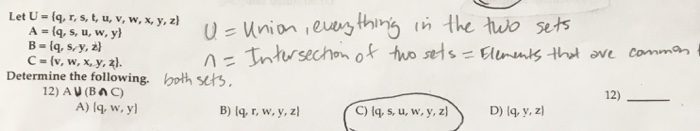 Let U = {q, r, s, t, u, v, w, x, y, z}
A = {q, s, u, w, y}
B = {q, s, y, z}
C = {v, w, x, y, z}.
U = Union, everything in the two sets
∩ = Intersection of two sets = Elements that are common
both sets.
Determine the following.
12) A ∪ (B ∩ C)
12)
A) {q, w, y}
B) {q, r, w, y, z}
C) {q, s, u, w, y, z}
D) {q, y, z}